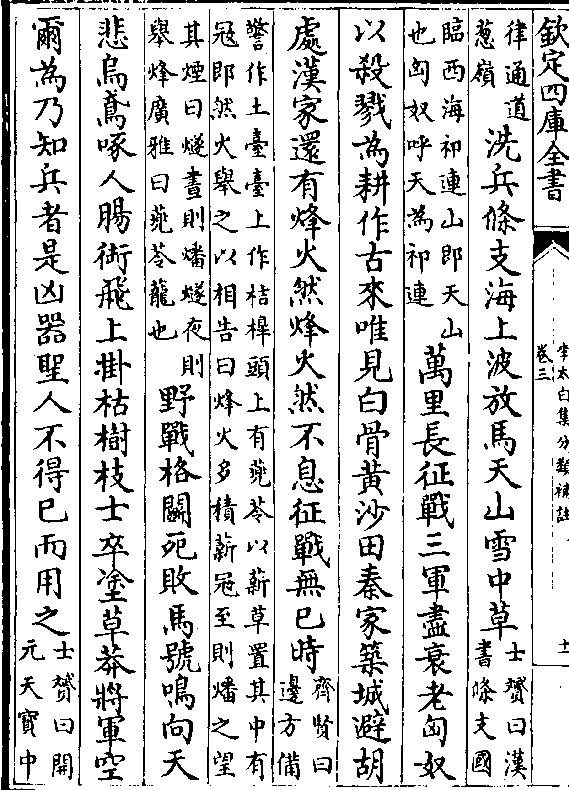 欽定四庫全書
李太白集分類補註
卷三
十一
律通道
葱嶺
洗兵條支海上波放馬天山雪中草
士贇曰漢
書條支國
臨西海祁連山即天山
也匈奴呼天為祁連
萬里長征戰三軍盡衰老匈奴
以殺戮為耕作古來唯見白骨黄沙田秦家築城避胡
處漢家還有烽火然烽火然不息征戰無已時
齊賢曰
邊方備
警作土臺臺上作桔槹頭上有兠苓以薪草置其中有
冦即然火舉之以相告曰烽火多積薪冦至則燔之望
其煙曰燧晝則燔燧夜則
舉烽廣雅曰兠苓籠也
野戰格鬭死敗馬號鳴向天
悲烏鳶啄人腸銜飛上掛枯樹枝士卒塗草莽將軍空
爾為乃知兵者是凶器聖人不得已而用之
士贇曰開
元天寶中